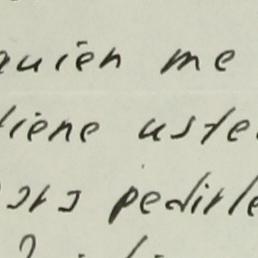 quien me
tiene uste
para pedirle